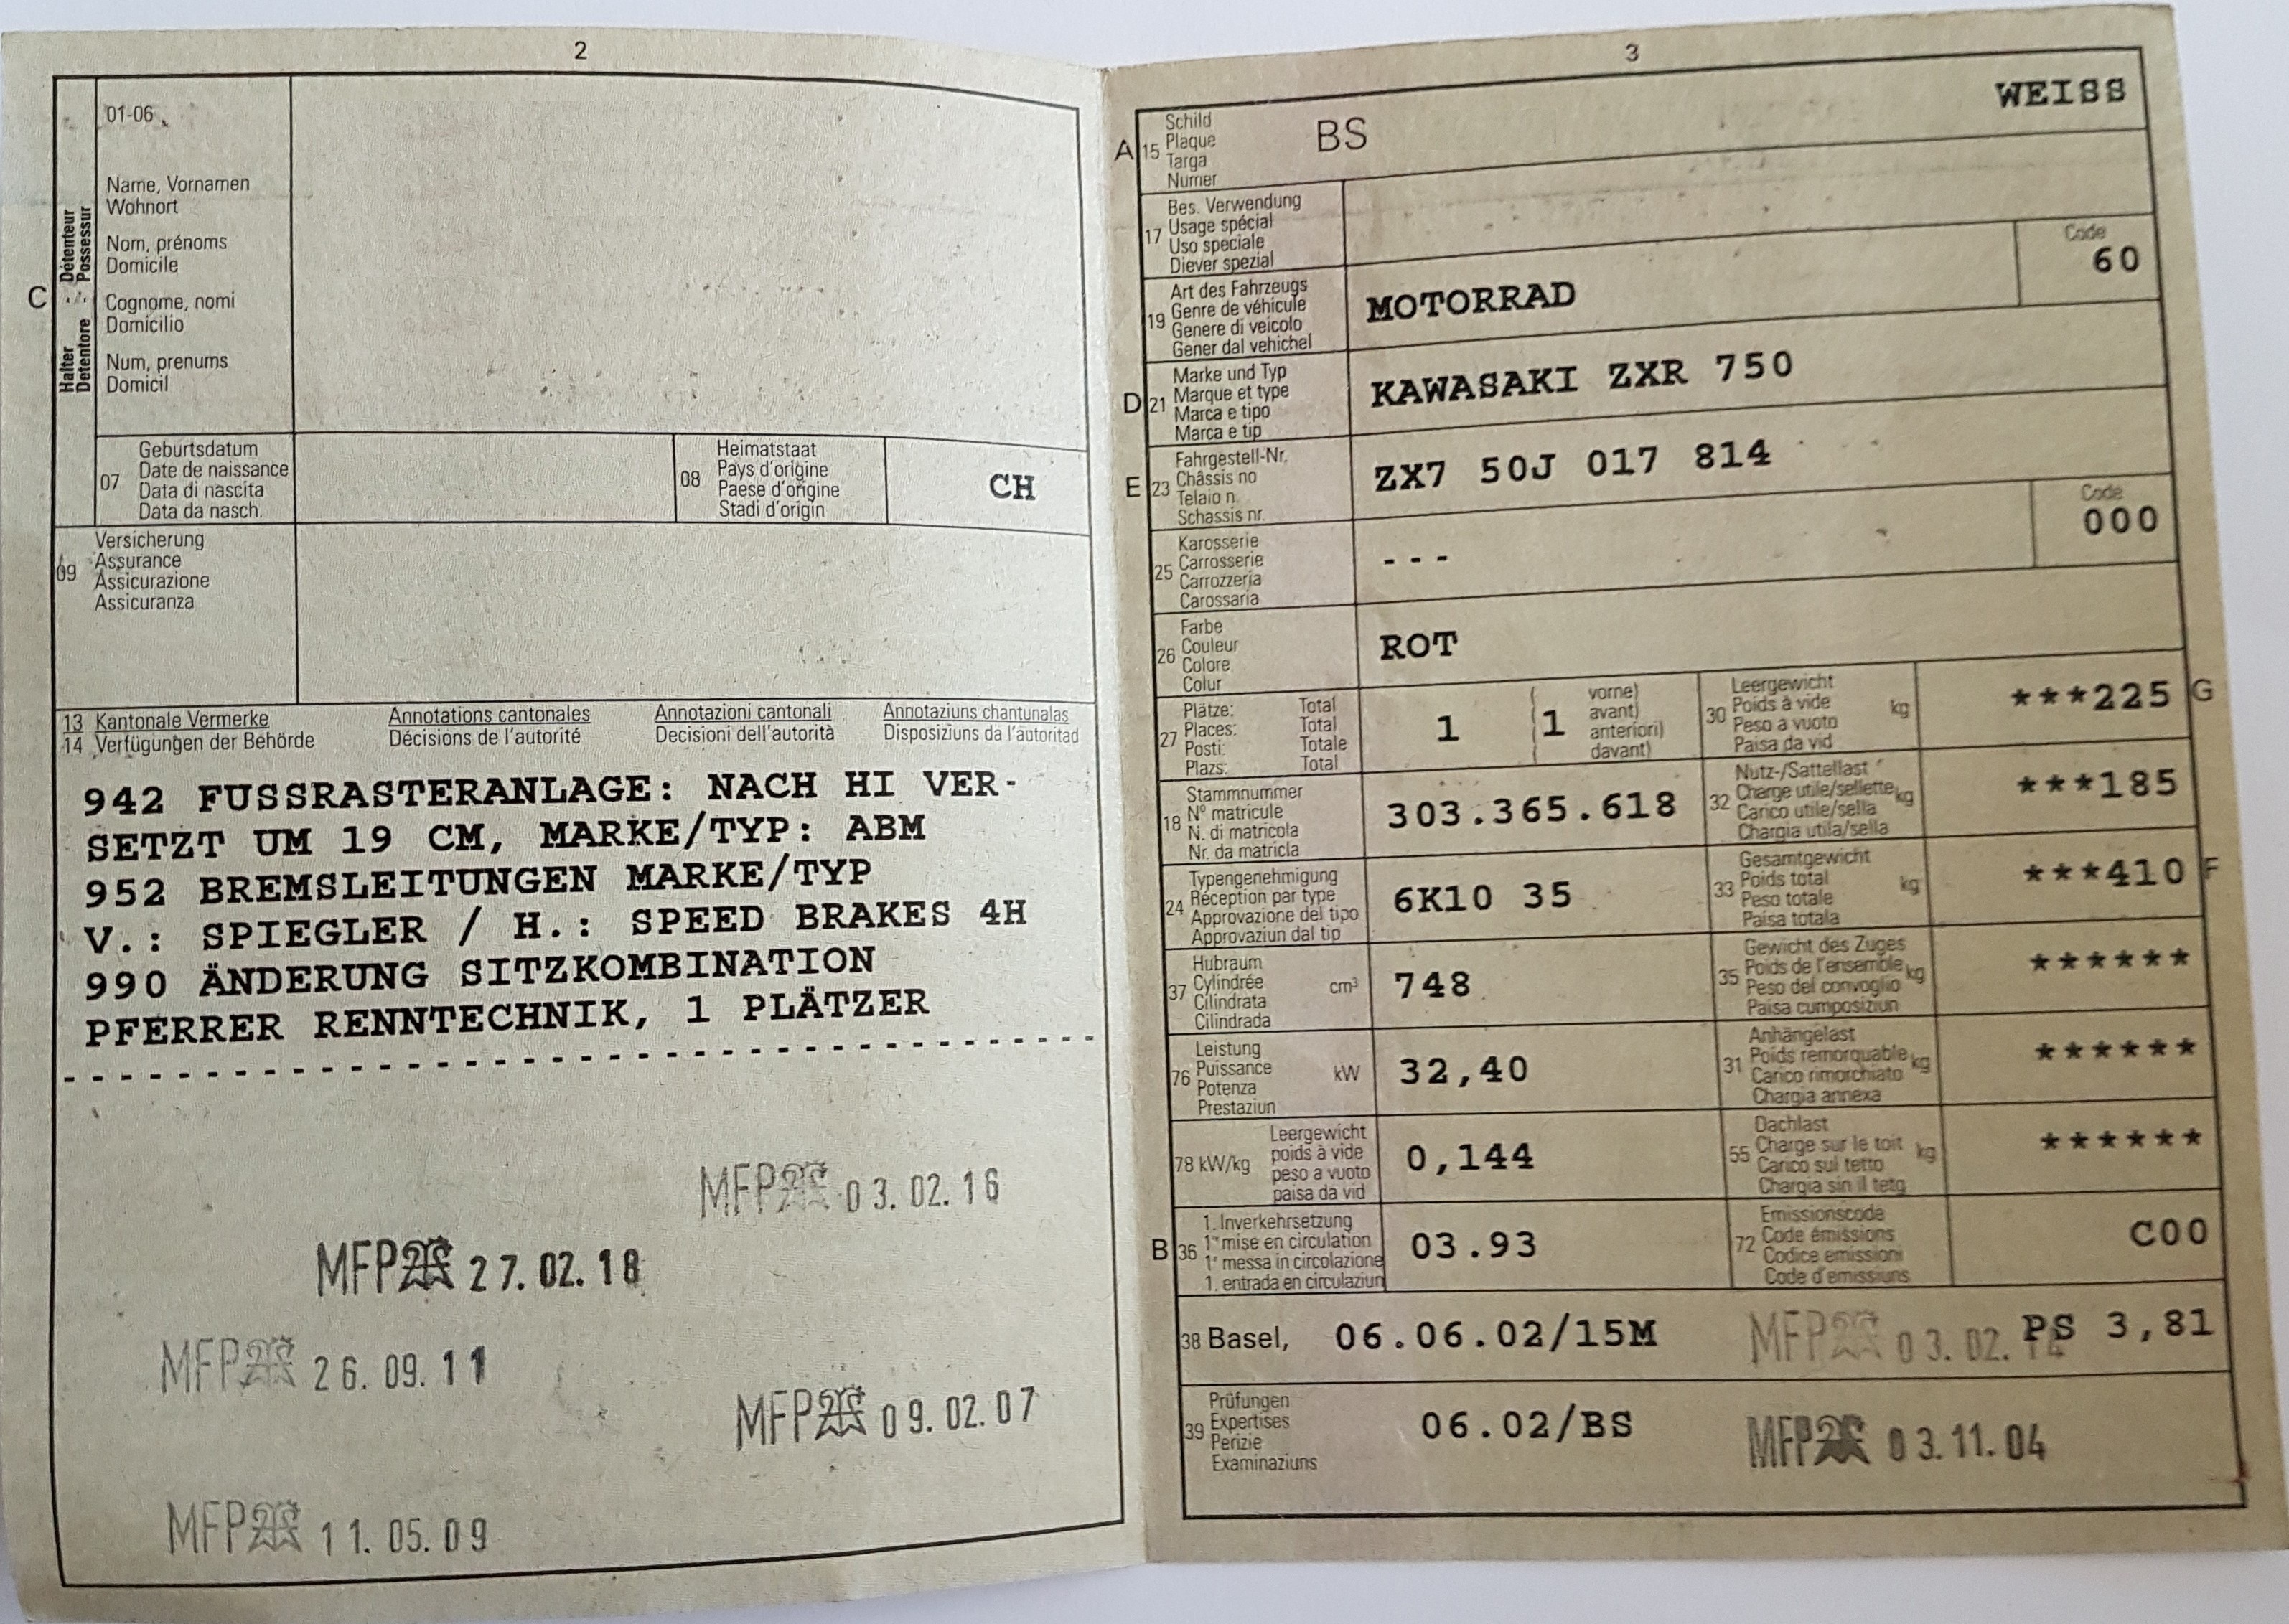 2
01-06
Name, Vornamen
Wohnort
Nom, prénoms
Domicile
Cognome, nomi
Domicilio
Num, prenums
Domicil
C
Halter Détenteur
Detentore Possessur
07
Geburtsdatum
Date de naissance
Data di nascita
Data da nasch.
08
Heimatstaat
Pays d'origine
Paese d'origine
Stadi d'origin
CH
09
Versicherung
Assurance
Assicurazione
Assicuranza
13 Kantonale Vermerke Annotations cantonales Annotazioni cantonali Annotaziuns chantunalas
14 Verfügungen der Behörde Décisions de l'autorité Decisioni dell'autorità Disposiziuns da l'autoritad
942 FUSSRASTERANLAGE: NACH HI VER-
SETZT UM 19 CM, MARKE/TYP: ABM
952 BREMSLEITUNGEN MARKE/TYP
V.: SPIEGLER / H.: SPEED BRAKES 4H
990 ÄNDERUNG SITZKOMBINATION
PFERRER RENNTECHNIK, 1 PLÄTZER
MFP 03.02.16
MFP 27.02.18
MFP 26.09.11
MFP 09.02.07
MFP 11.05.09
3
WEISS
A 15
Schild
Plaque
Targa
Numer
BS
17
Bes. Verwendung
Usage spécial
Uso speciale
Diever spezial
19
Art des Fahrzeugs
Genre de véhicule
Genere di veicolo
Gener dal vehichel
MOTORRAD
Code
60
D 21
Marke und Typ
Marque et type
Marca e tipo
Marca e tip
KAWASAKI ZXR 750
E 23
Fahrgestell-Nr.
Châssis no
Telaio n.
Schassis nr.
ZX7 50J 017 814
25
Karosserie
Carrosserie
Carrozzeria
Carossaria
---
Code
000
26
Farbe
Couleur
Colore
Colur
ROT
27
Plätze: Total
Places: Total
Posti: Totale
Plazs: Total
1
( 1
vorne)
avant)
anteriori)
davant)
30
Leergewicht
Poids à vide
Peso a vuoto
Paisa da vid
kg
***225 G
18
Stammnummer
N° matricule
N. di matricola
Nr. da matricla
303.365.618
32
Nutz-/Sattellast
Charge utile/sellette
Carico utile/sella
Chargia utila/sella
kg
***185
24
Typengenehmigung
Réception par type
Approvazione del tipo
Approvaziun dal tip
6K10 35
33
Gesamtgewicht
Poids total
Peso totale
Paisa totala
kg
***410 F
37
Hubraum
Cylindrée
Cilindrata
Cilindrada
cm³
748
35
Gewicht des Zuges
Poids de l'ensemble
Peso del convoglio
Paisa cumposiziun
kg
******
76
Leistung
Puissance
Potenza
Prestaziun
kW
32,40
31
Anhängelast
Poids remorquable
Carico rimorchiato
Chargia annexa
kg
******
78 kW/kg
Leergewicht
poids à vide
peso a vuoto
paisa da vid
0,144
55
Dachlast
Charge sur le toit
Carico sul tetto
Chargia sin il tetg
kg
******
B 36
1. Inverkehrsetzung
1re mise en circulation
1a messa in circolazione
1. entrada en circulaziun
03.93
72
Emissionscode
Code émissions
Codice emissioni
Code d'emissiuns
C00
38 Basel, 06.06.02/15M
MFP 03.02.14
PS 3,81
39
Prüfungen
Expertises
Perizie
Examinaziuns
06.02/BS
MFP 03.11.04